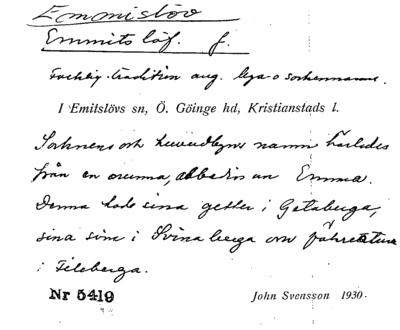 Emmislöv
Emmitslöf. f.
Folklig tradition ang. bya- o sockennamn.
I Emitslövs sn, Ö. Göinge hd, Kristianstads l.
Socknens och huvudbyns namn härledes
från en qvinna, abbedissan Emma.
Denna hade sina getter i Getaberga,
sina svin i Svinaberga och fåkreaturen
i Fileberga.
Nr 5419
John Svensson 1930.